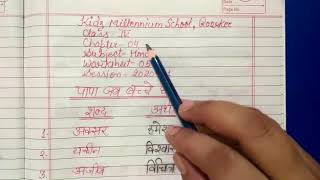 Kidz Millennium School, Roorkee
Class IV
Chapter- 04
Subject- Hindi
Worksheet- 05
Session- 2020
पापा जब बच्चे
शब्द
1. अक्सर हमेशा
2. यकीन विश्वास
3. अजीब विचित्र